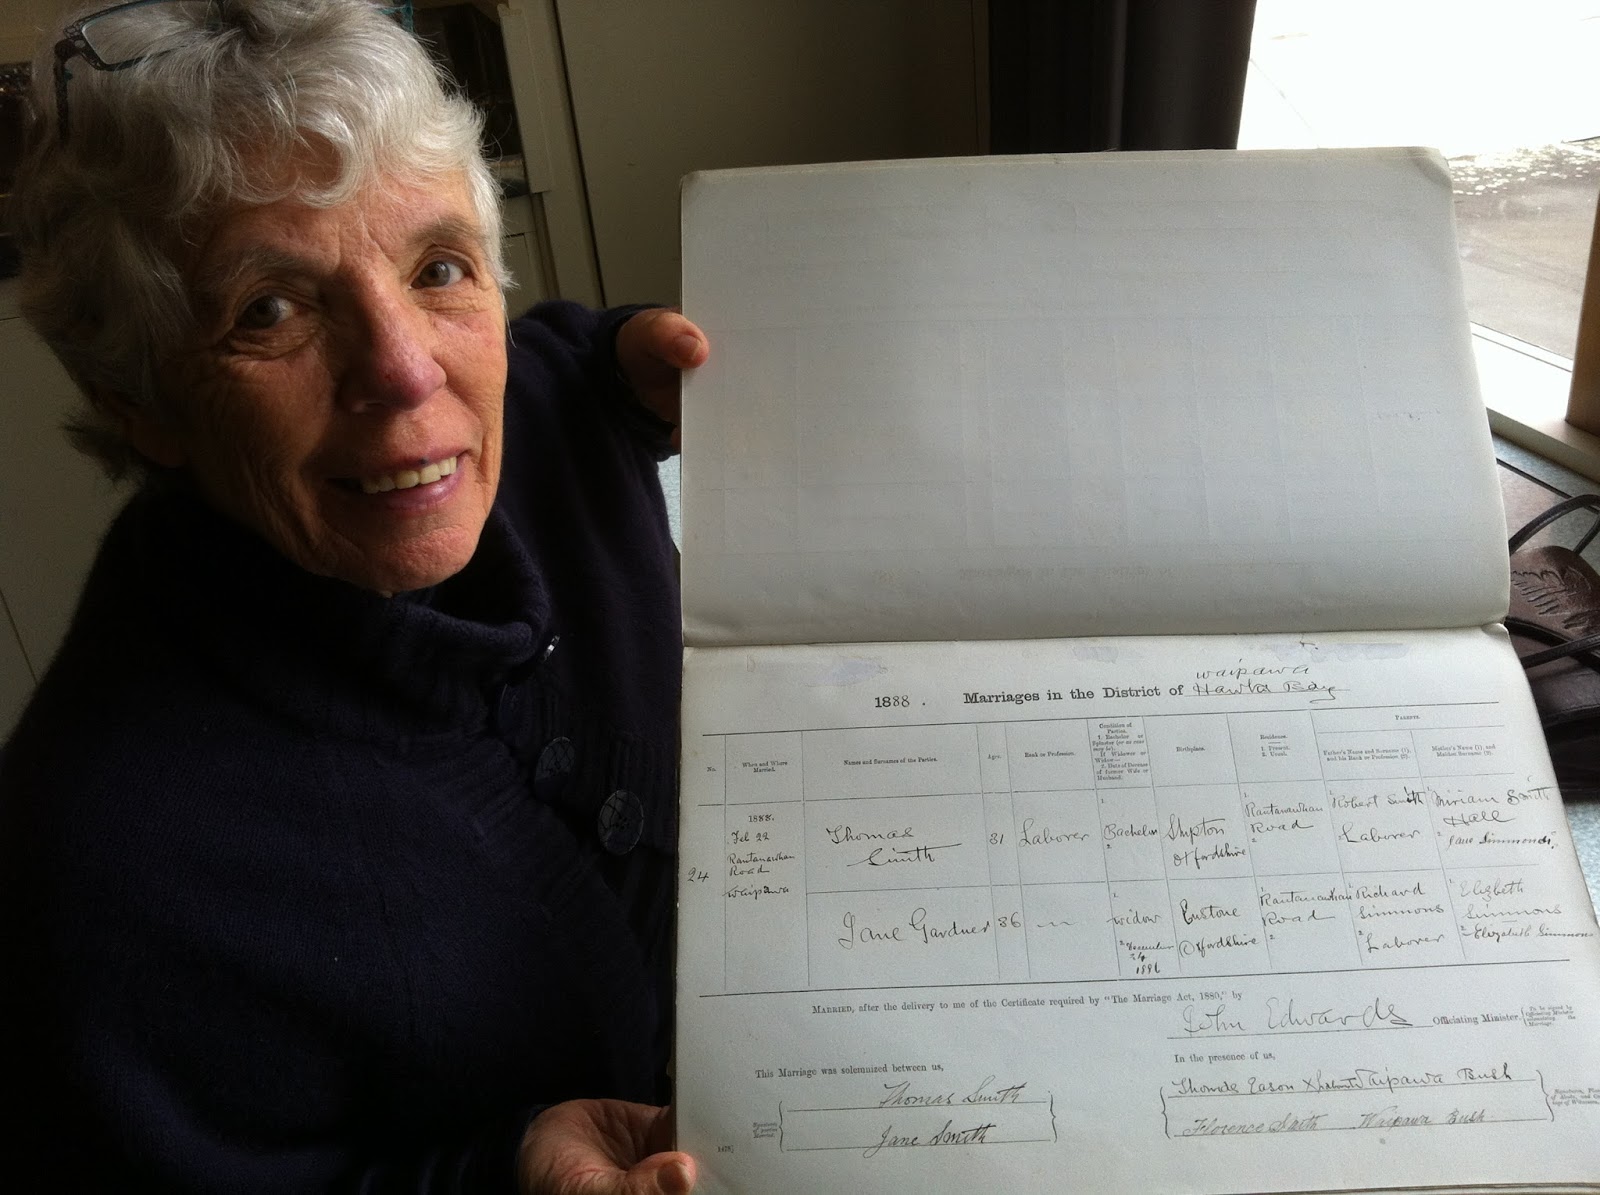 waipawa
1888. Marriages in the District of Hawke Bay
PARENTS.
No.
When and Where Married.
Names and Surnames of the Parties.
Age.
Rank or Profession.
Condition of Parties.
1. Bachelor or Spinster (or as case may be).
If Widower or Widow—
2. Date of Decease of former Wife or Husband.
Birthplace.
Residence.
1. Present.
2. Usual.
Father's Name and Surname (1), and his Rank or Profession (2).
Mother's Name (1), and Maiden Surname (2).
24
1888.
Feb 22
Road
Waipawa
Thomas
Smith
31
Laborer
1.
Bachelor
2
Shipton
Oxfordshire
1.
Road
2
1. Robert Smith
Laborer
Miriam Smith
Hall
2. Jane Simmonds
Jane Gardner
36
1.
widow
2. December
24
1886
Enstone
Oxfordshire
1.
Road
2
Richard
Simmons
2. Laborer
1.
Elizbeth
Simmons
2. Elizabeth Simmons
MARRIED, after the delivery to me of the Certificate required by "The Marriage Act, 1880," by
John Edwards Officiating Minister.
To be signed by Officiating Minister solemnizing the Marriage.
This Marriage was solemnized between us,
In the presence of us,
Signatures of parties married.
Thomas Smith
Jane Smith
Thomas Eason X Waipawa Bush
Florence Smith Waipawa Bush